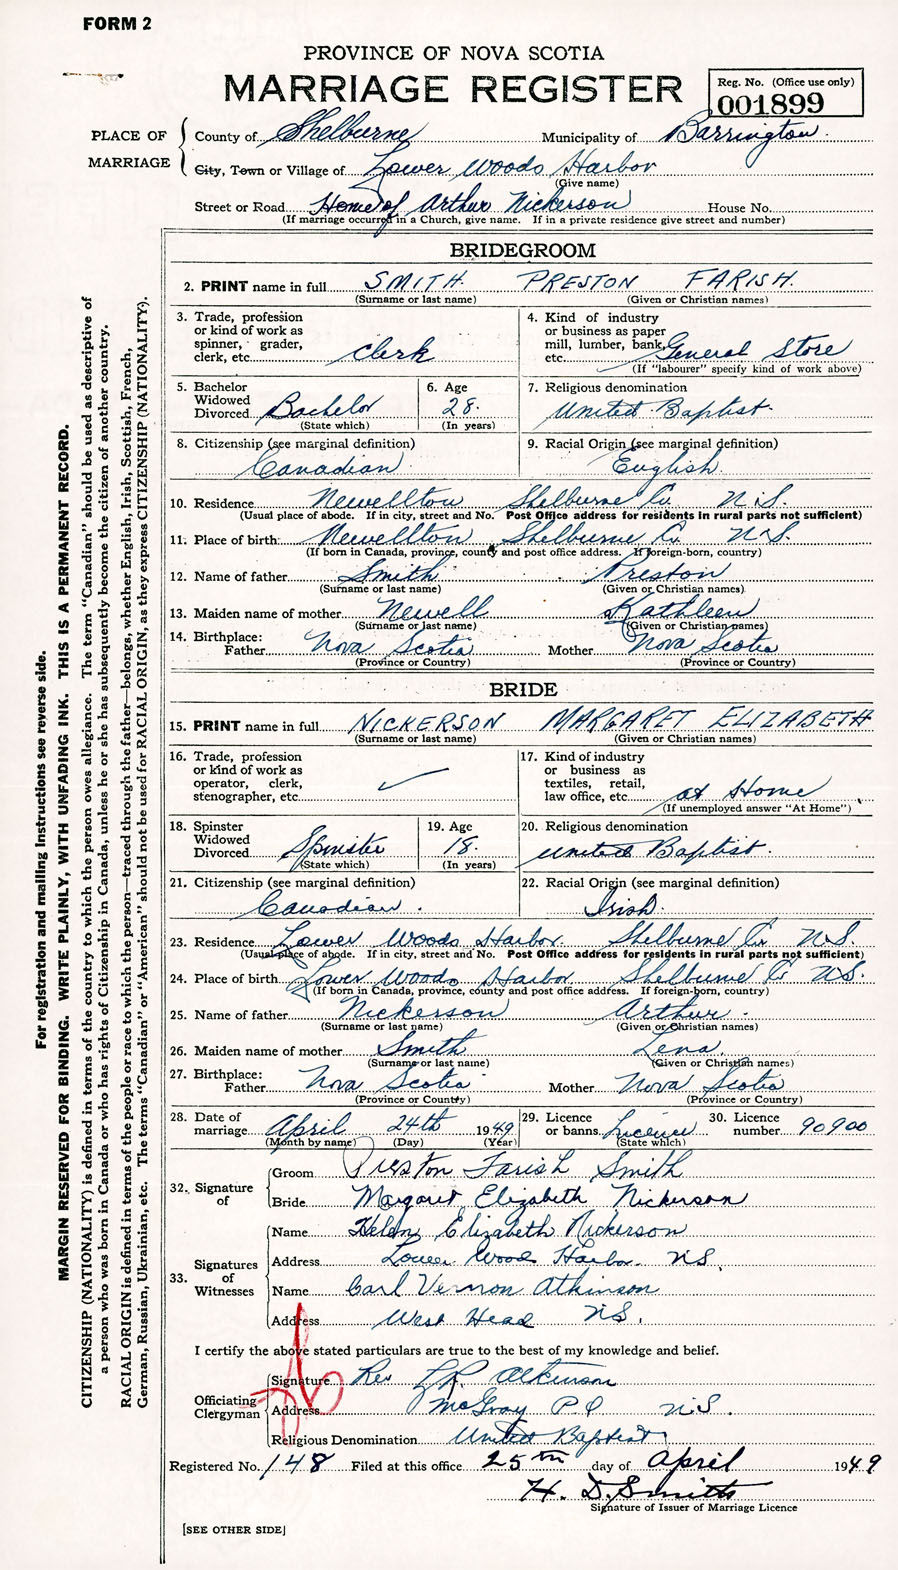 FORM 2
PROVINCE OF NOVA SCOTIA
MARRIAGE REGISTER
Reg. No. (Office use only)
001899
PLACE OF MARRIAGE
County of Shelburne Municipality of Barrington
City, Town or Village of Lower Woods Harbor
(Give name)
Street or Road Home of Arthur Nickerson House No.
(If marriage occurred in a Church, give name. If in a private residence give street and number)
BRIDEGROOM
2. PRINT name in full SMITH PRESTON FARISH.
(Surname or last name) (Given or Christian names)
3. Trade, profession or kind of work as spinner, grader, clerk, etc. Clerk
4. Kind of industry or business as paper mill, lumber, bank, etc. General Store
(If "labourer" specify kind of work above)
5. Bachelor Widowed Divorced Bachelor
(State which)
6. Age 28.
(In years)
7. Religious denomination United Baptist.
8. Citizenship (see marginal definition) Canadian.
9. Racial Origin (see marginal definition) English.
10. Residence Newellton Shelburne Co. N.S.
(Usual place of abode. If in city, street and No. Post Office address for residents in rural parts not sufficient)
11. Place of birth Newellton Shelburne Co. N.S.
(If born in Canada, province, county and post office address. If foreign-born, country)
12. Name of father Smith Preston
(Surname or last name) (Given or Christian names)
13. Maiden name of mother Newell Kathleen
(Surname or last name) (Given or Christian names)
14. Birthplace: Father Nova Scotia Mother Nova Scotia
(Province or Country) (Province or Country)
BRIDE
15. PRINT name in full NICKERSON MARGARET ELIZABETH
(Surname or last name) (Given or Christian names)
16. Trade, profession or kind of work as operator, clerk, stenographer, etc.
17. Kind of industry or business as textiles, retail, law office, etc. at Home
(If unemployed answer "At Home")
18. Spinster Widowed Divorced Spinster
(State which)
19. Age 18.
(In years)
20. Religious denomination United Baptist.
21. Citizenship (see marginal definition) Canadian.
22. Racial Origin (see marginal definition) Irish.
23. Residence Lower Woods Harbor. Shelburne Co. N.S.
(Usual place of abode. If in city, street and No. Post Office address for residents in rural parts not sufficient)
24. Place of birth Lower Woods Harbor Shelburne Co N.S.
(If born in Canada, province, county and post office address. If foreign-born, country)
25. Name of father Nickerson Arthur.
(Surname or last name) (Given or Christian names)
26. Maiden name of mother Smith Lena.
(Surname or last name) (Given or Christian names)
27. Birthplace: Father Nova Scotia Mother Nova Scotia
(Province or Country) (Province or Country)
28. Date of marriage April 24th 1949
(Month by name) (Day) (Year)
29. Licence or banns Licence
(State which)
30. Licence number 90900
32. Signature of
Groom Preston Farish Smith
Bride Margaret Elizabeth Nickerson
33. Signatures of Witnesses
Name Helen Elizabeth Nickerson
Address Lower Wood Harbor N.S.
Name Carl Vernon Atkinson
Address West Head N.S.
I certify the above stated particulars are true to the best of my knowledge and belief.
Officiating Clergyman
Signature Rev Atkinson
Address McGray P.O N.S.
Religious Denomination United Baptist
Registered No. 148 Filed at this office 25th day of April 1949
H. D. Smith
Signature of Issuer of Marriage Licence
[SEE OTHER SIDE]
For registration and mailing instructions see reverse side.
MARGIN RESERVED FOR BINDING. WRITE PLAINLY, WITH UNFADING INK. THIS IS A PERMANENT RECORD.
CITIZENSHIP (NATIONALITY) is defined in terms of the country to which the person owes allegiance. The term "Canadian" should be used as descriptive of
a person who was born in Canada or who has rights of Citizenship in Canada, unless he or she has subsequently become the citizen of another country.
RACIAL ORIGIN is defined in terms of the people or race to which the person—traced through the father—belongs, whether English, Irish, Scottish, French,
German, Russian, Ukrainian, etc. The terms "Canadian" or "American" should not be used for RACIAL ORIGIN, as they express CITIZENSHIP (NATIONALITY).